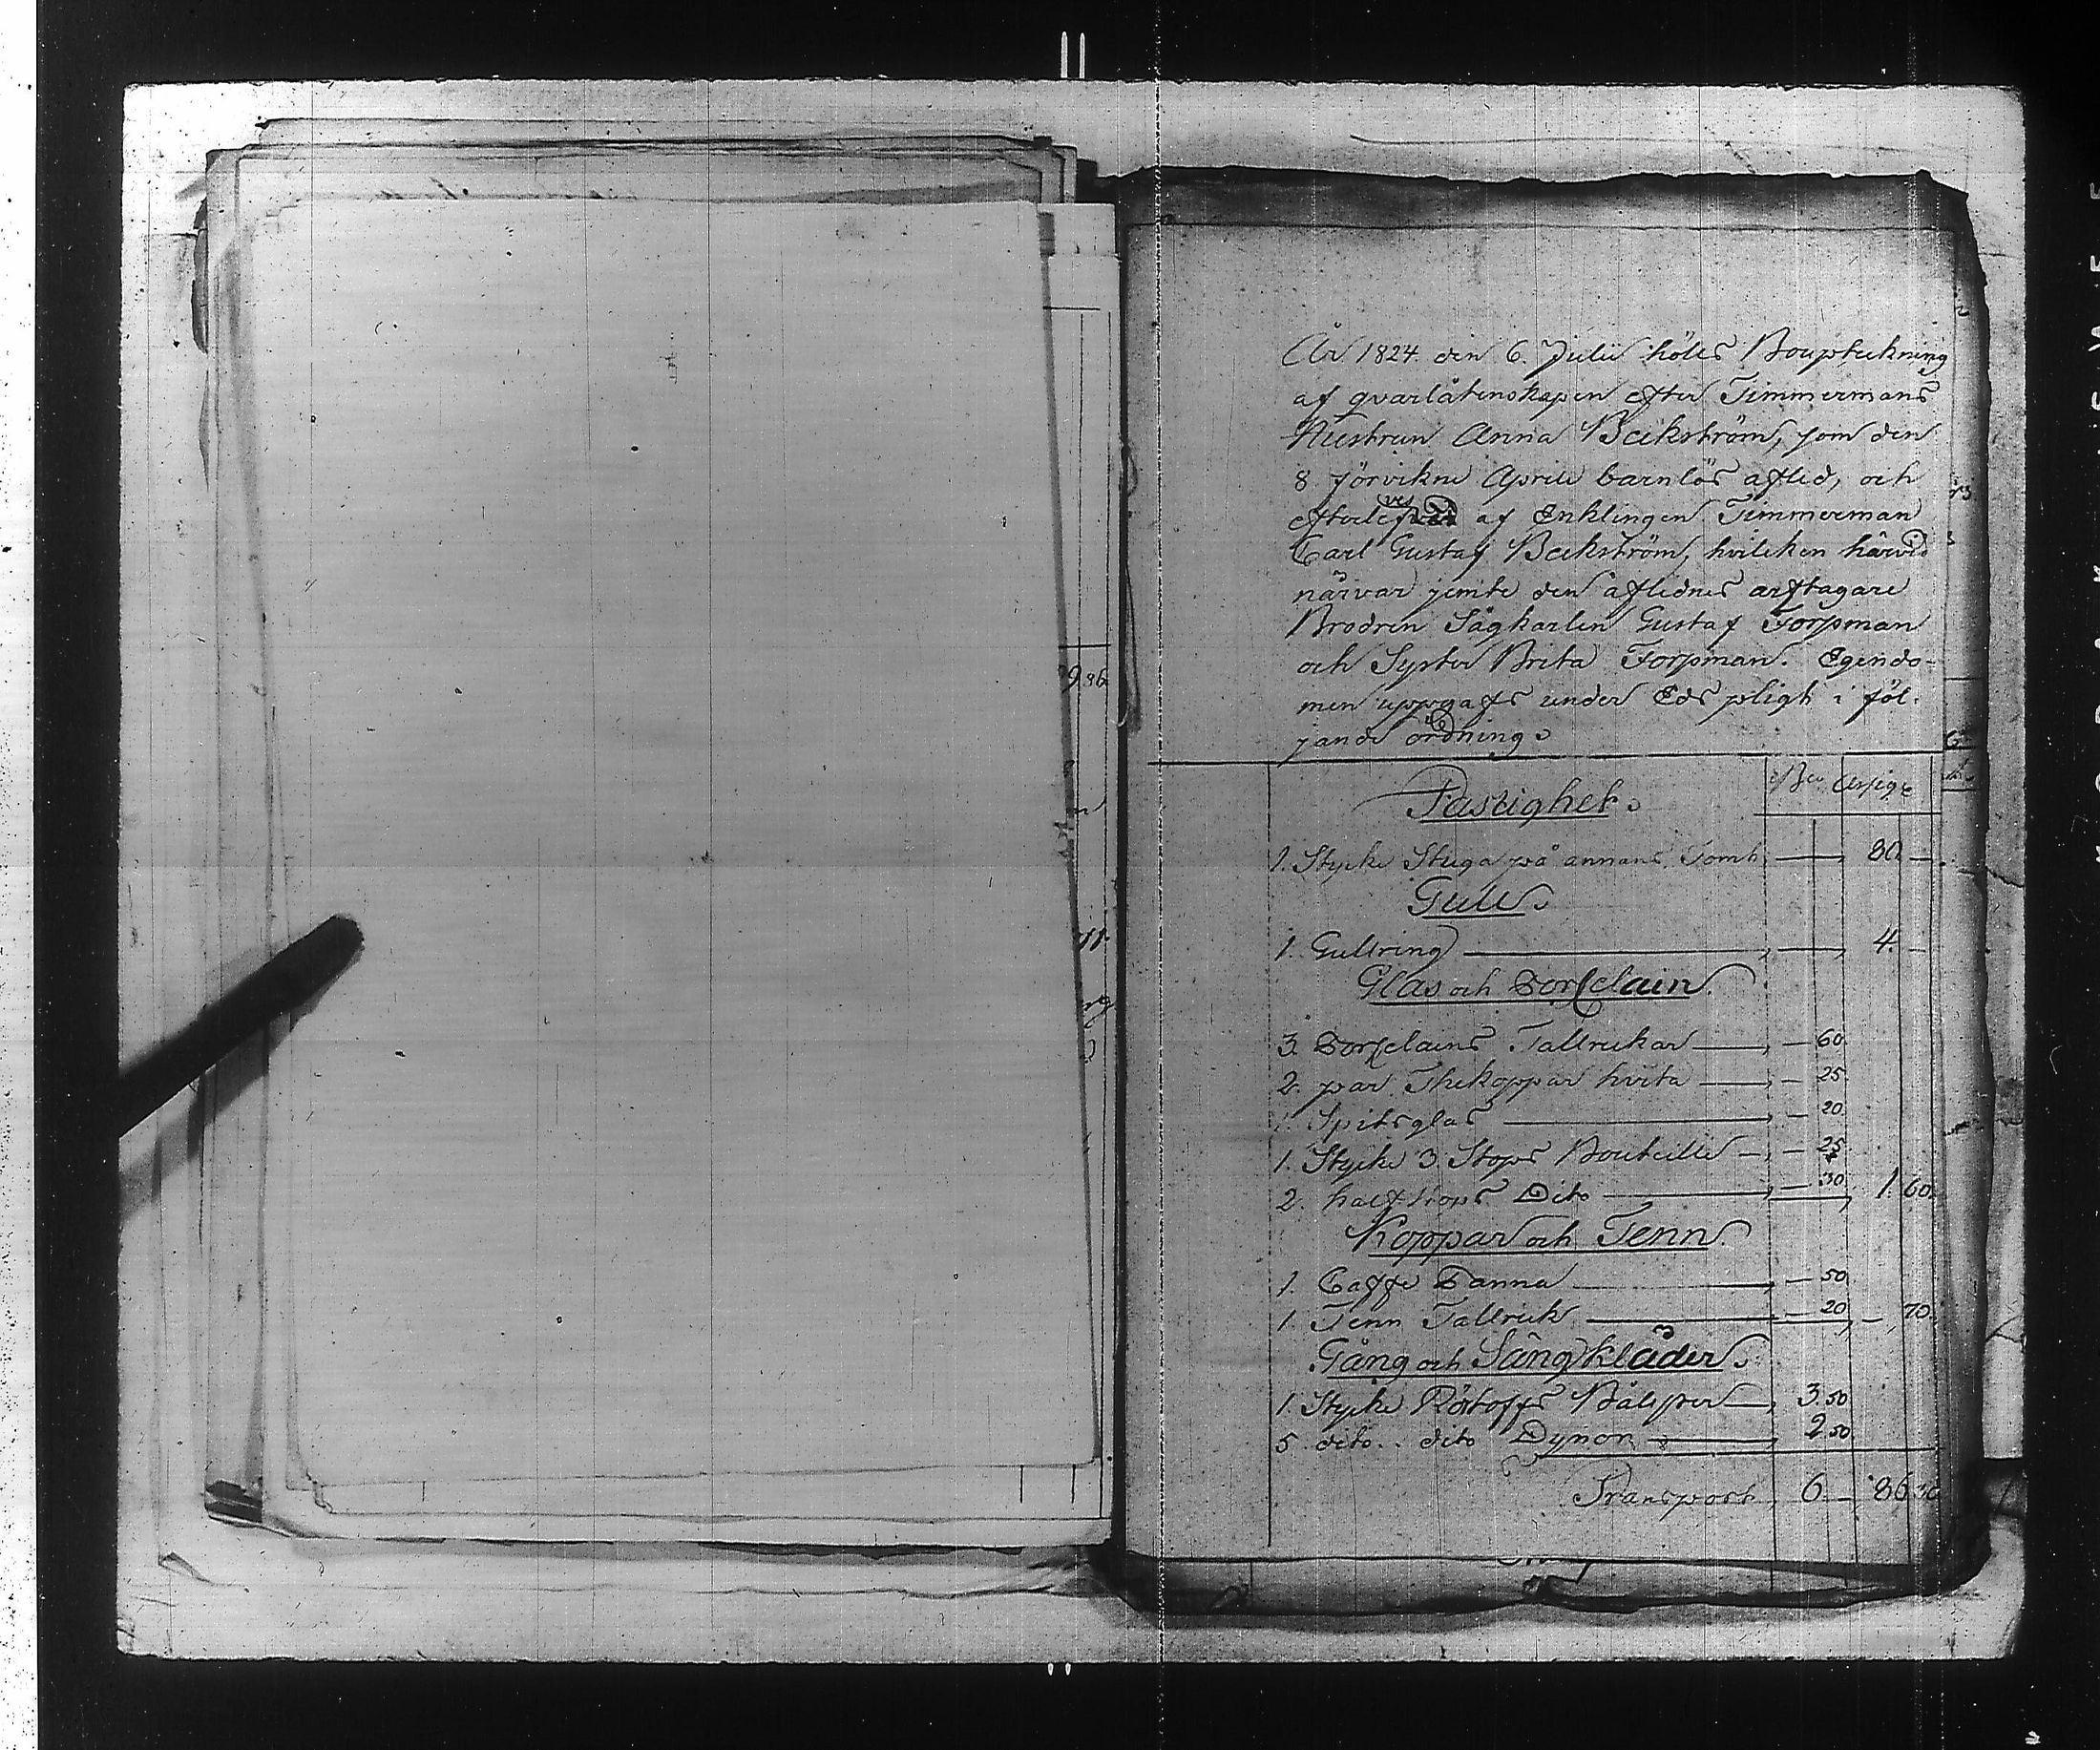 År 1824. den 6. Julii hölls Bouptekning
af qvarlåtenskapen efter Timmermans
Hustrun Anna Beckström, som den
8 sörvikne Aprill barnlös afled, och
efterlefves af Enklingen Timmerman
Carl Gustaf Beckström, hvilcken härvid
närvar jemte den aflednes arftagare
Brodren Sågkarlen Gustaf Forssman
och Syster Brita Forssman. Egendo-
men uppgafs under Eds pligt i föl-
jande ordning.
Fastighet.
1. Stycke Stuga på annans Tomt 80. —
Gull.
1. Gullring 4. —
Glas och Porslain
3. Porslains Tallrickar — 60.
2. par Thekoppar hvita — 25.
1. Spitsglas — 20.
1. Stycke 3. Stops Bouteille — 25
2. half Stops Dito — 30 1. 60.
Koppar och Tenn
1. Caffe Panna — 50
1. Tenn Tallrick — 20 — 70.
Gång och Sängkläder.
1. Stycke 3.50
5. dito. dito Dynor 2.50
Transport 6. — 86.30
9.36